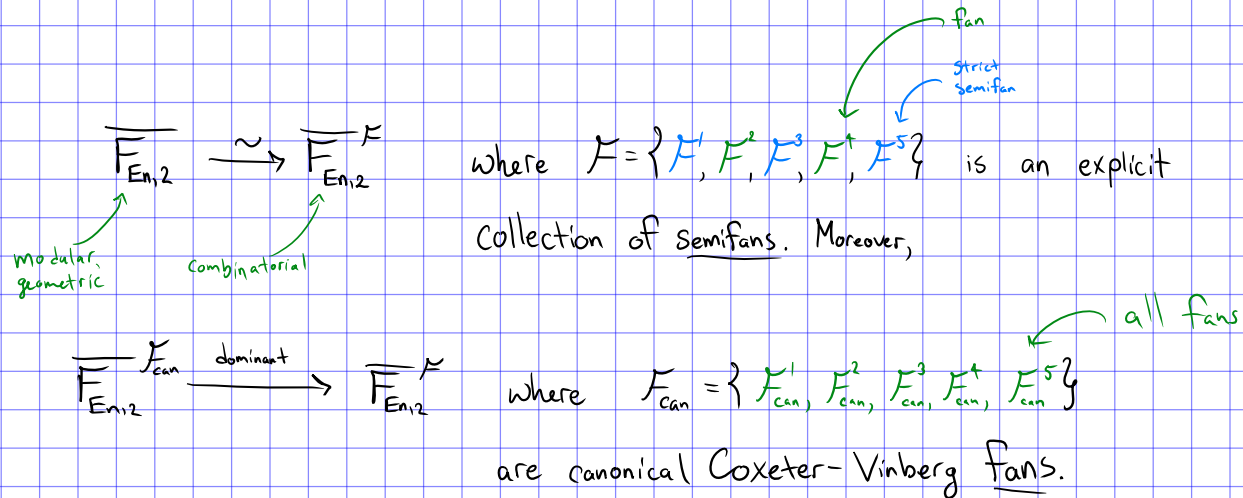 fan
strict
semifan
F̅_{En,2} ⥲ F̅_{En,2}^F where F = {F¹, F², F³, F⁴, F⁵} is an explicit
collection of semifans. Moreover,
modular,
geometric
combinatorial
all fans
F̅_{En,2}^{F_can} dominant → F̅_{En,2}^F where F_can = {F¹_can, F²_can, F³_can, F⁴_can, F⁵_can}
are canonical Coxeter-Vinberg fans.